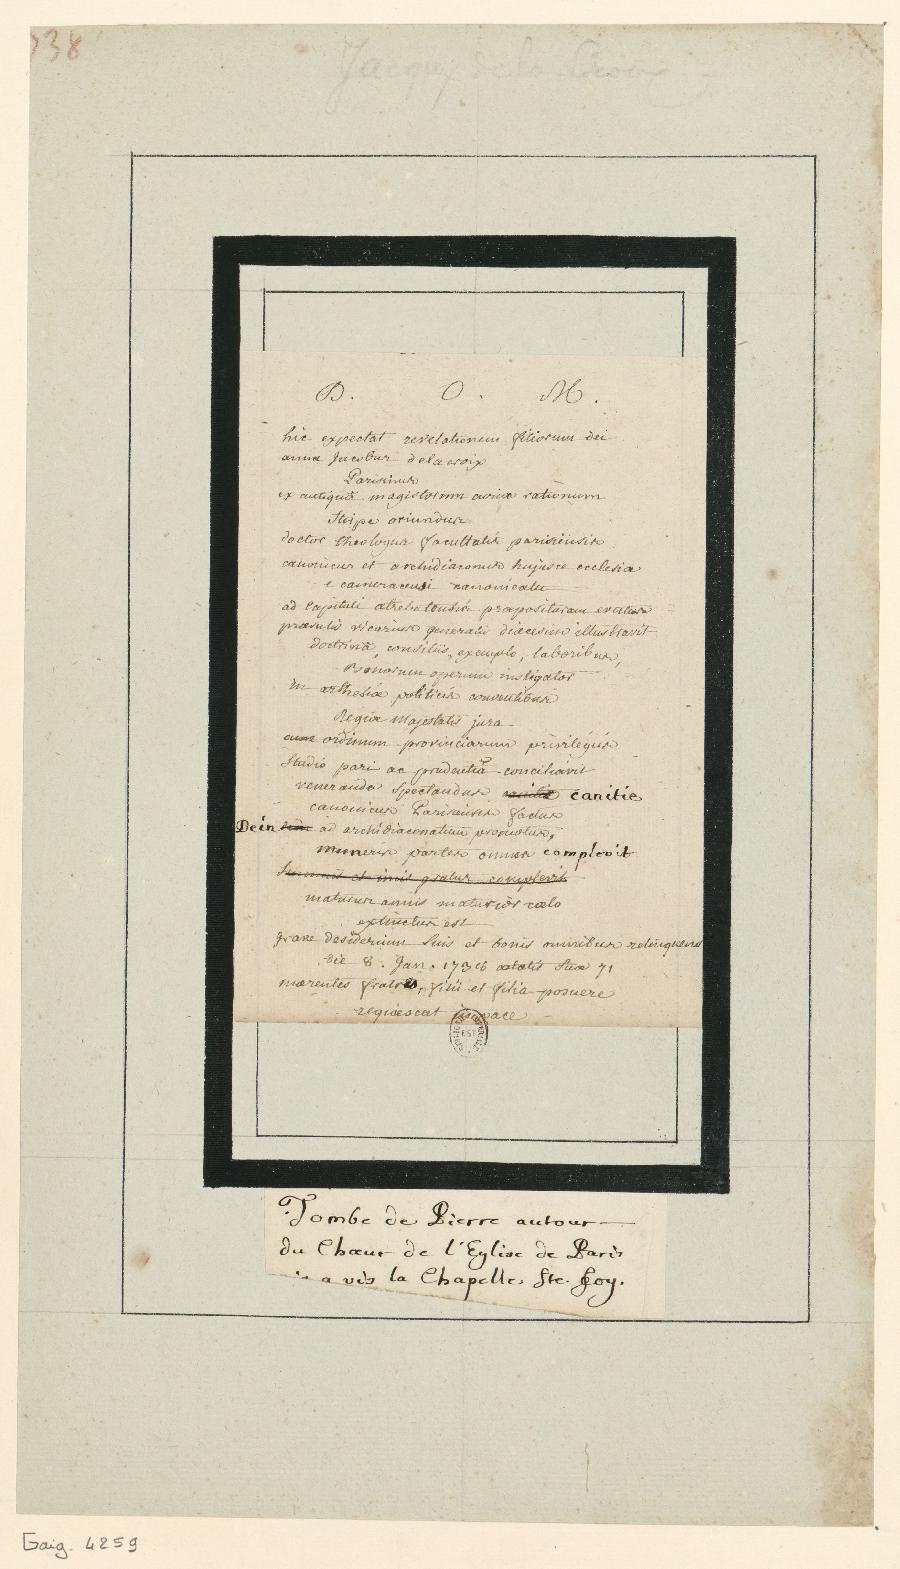 238
Jacques de la Croix
D. O. M.
hic expectat revelationem filiorum dei
anna Jacobus delacroix
Parisinus
ex antiquâ magistrorum aviae rationum
stirpe oriundus
doctor theologus facultatis parisiensis
canonicus et archidiaconus hujusce ecclesiae
e cameracensi canonicatu
ad capituli atrebatensis praeposituram evectus
praesulis vicarius generalis diaecesim illustravit
doctrinâ, consiliis, exemplo, laboribus,
Bonorum operum instigator
in arthesiae politicis conventibus
Regiae Majestatis jura
cum ordinum provinciarum privilegiis
studio pari ac prudentiâ conciliavit
veneranda spectandus canitie
canonicus Parisiensis factus
Dein ad archidiaconatum promotus,
muneris partes omnes complevit
summis et imis gratus complevit
maturus annis maturior caelo
extinctus est
grave desiderium suis et bonis omnibus relinquens
die 8. Jan. 1736 aetatis suae 71
maerentes fratres, filii et filia posuere
requiescat in pace
Tombe de Pierre autour
du Chœur de l'Eglise de Paris
vis a vis la Chapelle Ste. Foy.
Gaig. 4259